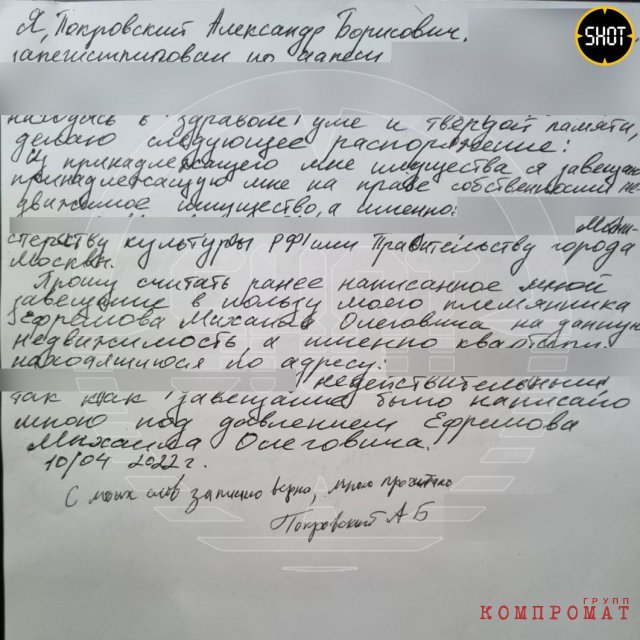 Я, Покровский Александр Борисович,
SHOT
зарегистрирован по адресу
находясь в здравом уме и твёрдой памяти,
делаю следующее распоряжение:
Из принадлежащего мне имущества я завещаю
принадлежащую мне на праве собственности не-
движимое имущество, а именно:
Мини-
стерству культуры РФ или Правительству города
Москвы.
Прошу считать ранее написанное мной
завещание в пользу моего племянника
Ефремова Михаила Олеговича на данную
недвижимость а именно квартиры.
находящиюся по адресу:
недействительным
так как завещание было написано
мною под давлением Ефремова
Михаила Олеговича.
10/04 2022г.
С моих слов записано верно, мною прочитано
Покровский А Б
ГРУПП
КОМПРОМАТ